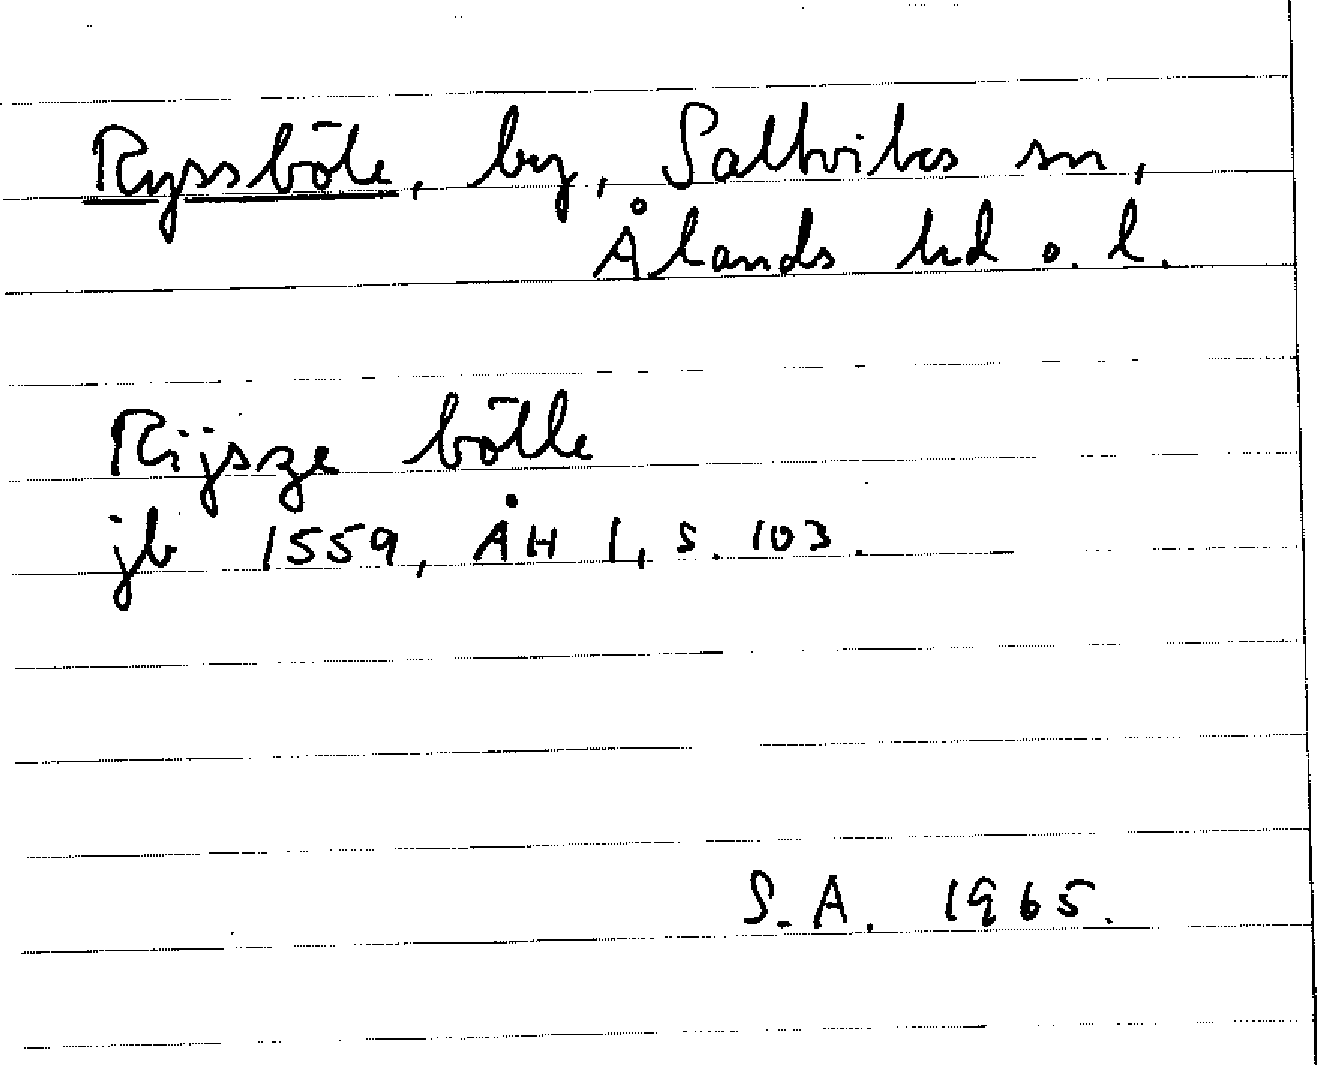 Ryssböle, by, Saltviks sn,
Ålands hd o. l.
Rijsze bölle
jb 1559, ÅH I, s. 103.
S.A. 1965.